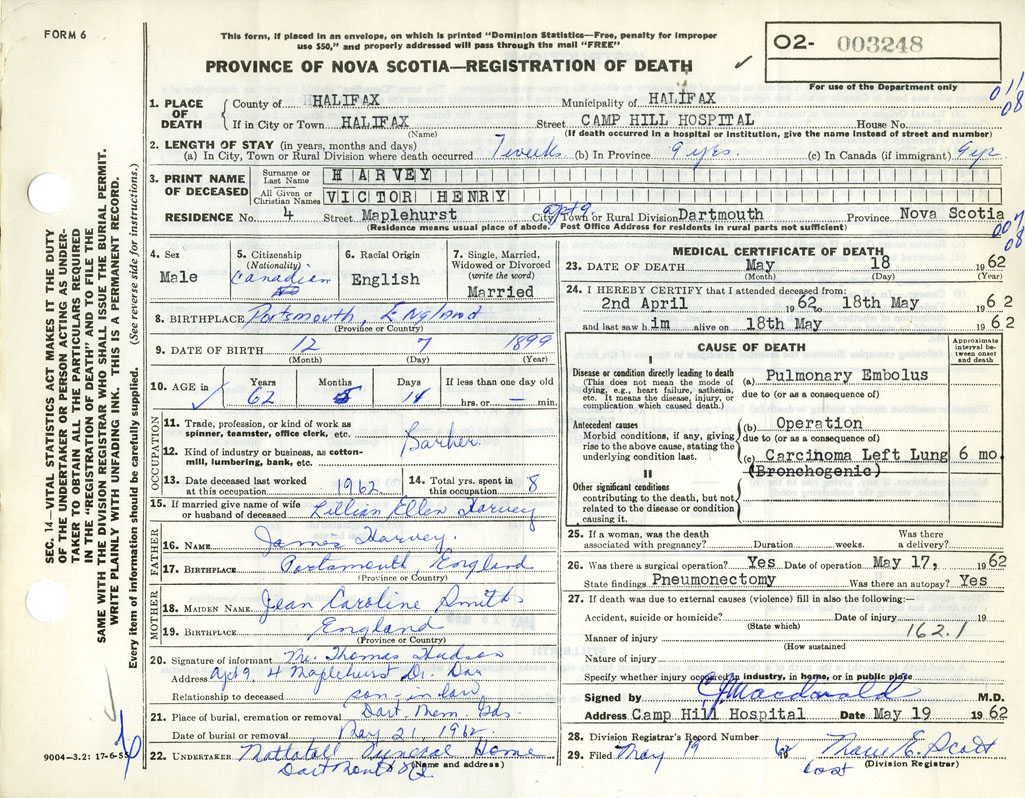 FORM 6
This form, if placed in an envelope, on which is printed "Dominion Statistics—Free, penalty for improper
use $50," and properly addressed will pass through the mail "FREE"
PROVINCE OF NOVA SCOTIA—REGISTRATION OF DEATH
02- 003248
For use of the Department only
011
08
1. PLACE OF DEATH
County of HALIFAX Municipality of HALIFAX
If in City or Town HALIFAX Street CAMP HILL HOSPITAL House No.
(Name) (If death occurred in a hospital or institution, give the name instead of street and number)
2. LENGTH OF STAY (in years, months and days)
(a) In City, Town or Rural Division where death occurred 7 weeks (b) In Province 9 yrs. (c) In Canada (if immigrant) 9 yr
3. PRINT NAME OF DECEASED
Surname or Last Name HARVEY
All Given or Christian Names VICTOR HENRY
RESIDENCE No. 4 Street Maplehurst apt 9. City, Town or Rural Division Dartmouth Province Nova Scotia
(Residence means usual place of abode. Post Office Address for residents in rural parts not sufficient)
007
08
4. Sex
Male
5. Citizenship
(Nationality)
Canadian
6. Racial Origin
English
7. Single, Married, Widowed or Divorced
(write the word)
Married
8. BIRTHPLACE Portsmouth, England
(Province or Country)
9. DATE OF BIRTH 12 7 1899
(Month) (Day) (Year)
10. AGE in Years Months Days If less than one day old
62 5 14 hrs. or — min.
OCCUPATION
11. Trade, profession, or kind of work as
spinner, teamster, office clerk, etc.
Barber
12. Kind of industry or business, as cotton-
mill, lumbering, bank, etc.
13. Date deceased last worked
at this occupation 1962
14. Total yrs. spent in
this occupation 8
15. If married give name of wife
or husband of deceased Lillian Ellen Harvey
FATHER
16. NAME James Harvey.
17. BIRTHPLACE Portsmouth, England
(Province or Country)
MOTHER
18. MAIDEN NAME Jean Caroline Smith
19. BIRTHPLACE England
(Province or Country)
20. Signature of informant Mr. Thomas Hudson
Address Apt 9. 4 Maplehurst Dr. Dar
Relationship to deceased son-in-law
21. Place of burial, cremation or removal Dart Mem Gds.
Date of burial or removal May 21, 1962
22. UNDERTAKER Mattatall Funeral Home
Dartmouth N.S.
(Name and address)
MEDICAL CERTIFICATE OF DEATH
23. DATE OF DEATH May 18 1962
(Month) (Day) (Year)
24. I HEREBY CERTIFY that I attended deceased from:
2nd April 1962 to 18th May 1962
and last saw him alive on 18th May 1962
CAUSE OF DEATH
Approximate interval between onset and death
I
Disease or condition directly leading to death
(This does not mean the mode of
dying, e.g., heart failure, asthenia,
etc. It means the disease, injury, or
complication which caused death.)
(a) Pulmonary Embolus
due to (or as a consequence of)
Antecedent causes
Morbid conditions, if any, giving
rise to the above cause, stating the
underlying condition last.
(b) Operation
due to (or as a consequence of)
(c) Carcinoma Left Lung 6 mo.
(Bronchogenic)
II
Other significant conditions
contributing to the death, but not
related to the disease or condition
causing it.
25. If a woman, was the death
associated with pregnancy? Duration weeks. Was there
a delivery?
26. Was there a surgical operation? Yes Date of operation May 17, 1962
State findings Pneumonectomy Was there an autopsy? Yes
27. If death was due to external causes (violence) fill in also the following:—
Accident, suicide or homicide? Date of injury 19
(State which)
162.1
Manner of injury
(How sustained
Nature of injury
Specify whether injury occurred in industry, in home, or in public place
Signed by C J Macdonald M.D.
Address Camp Hill Hospital Date May 19 1962
28. Division Registrar's Record Number
29. Filed May 19 62 E. Scott
(Division Registrar)
SEC. 14—VITAL STATISTICS ACT MAKES IT THE DUTY
OF THE UNDERTAKER OR PERSON ACTING AS UNDER-
TAKER TO OBTAIN ALL THE PARTICULARS REQUIRED
IN THE "REGISTRATION OF DEATH" AND TO FILE THE
SAME WITH THE DIVISION REGISTRAR WHO SHALL ISSUE THE BURIAL PERMIT.
WRITE PLAINLY WITH UNFADING INK. THIS IS A PERMANENT RECORD.
Every item of information should be carefully supplied. (See reverse side for instructions.)
9004—3.2: 17-6-55